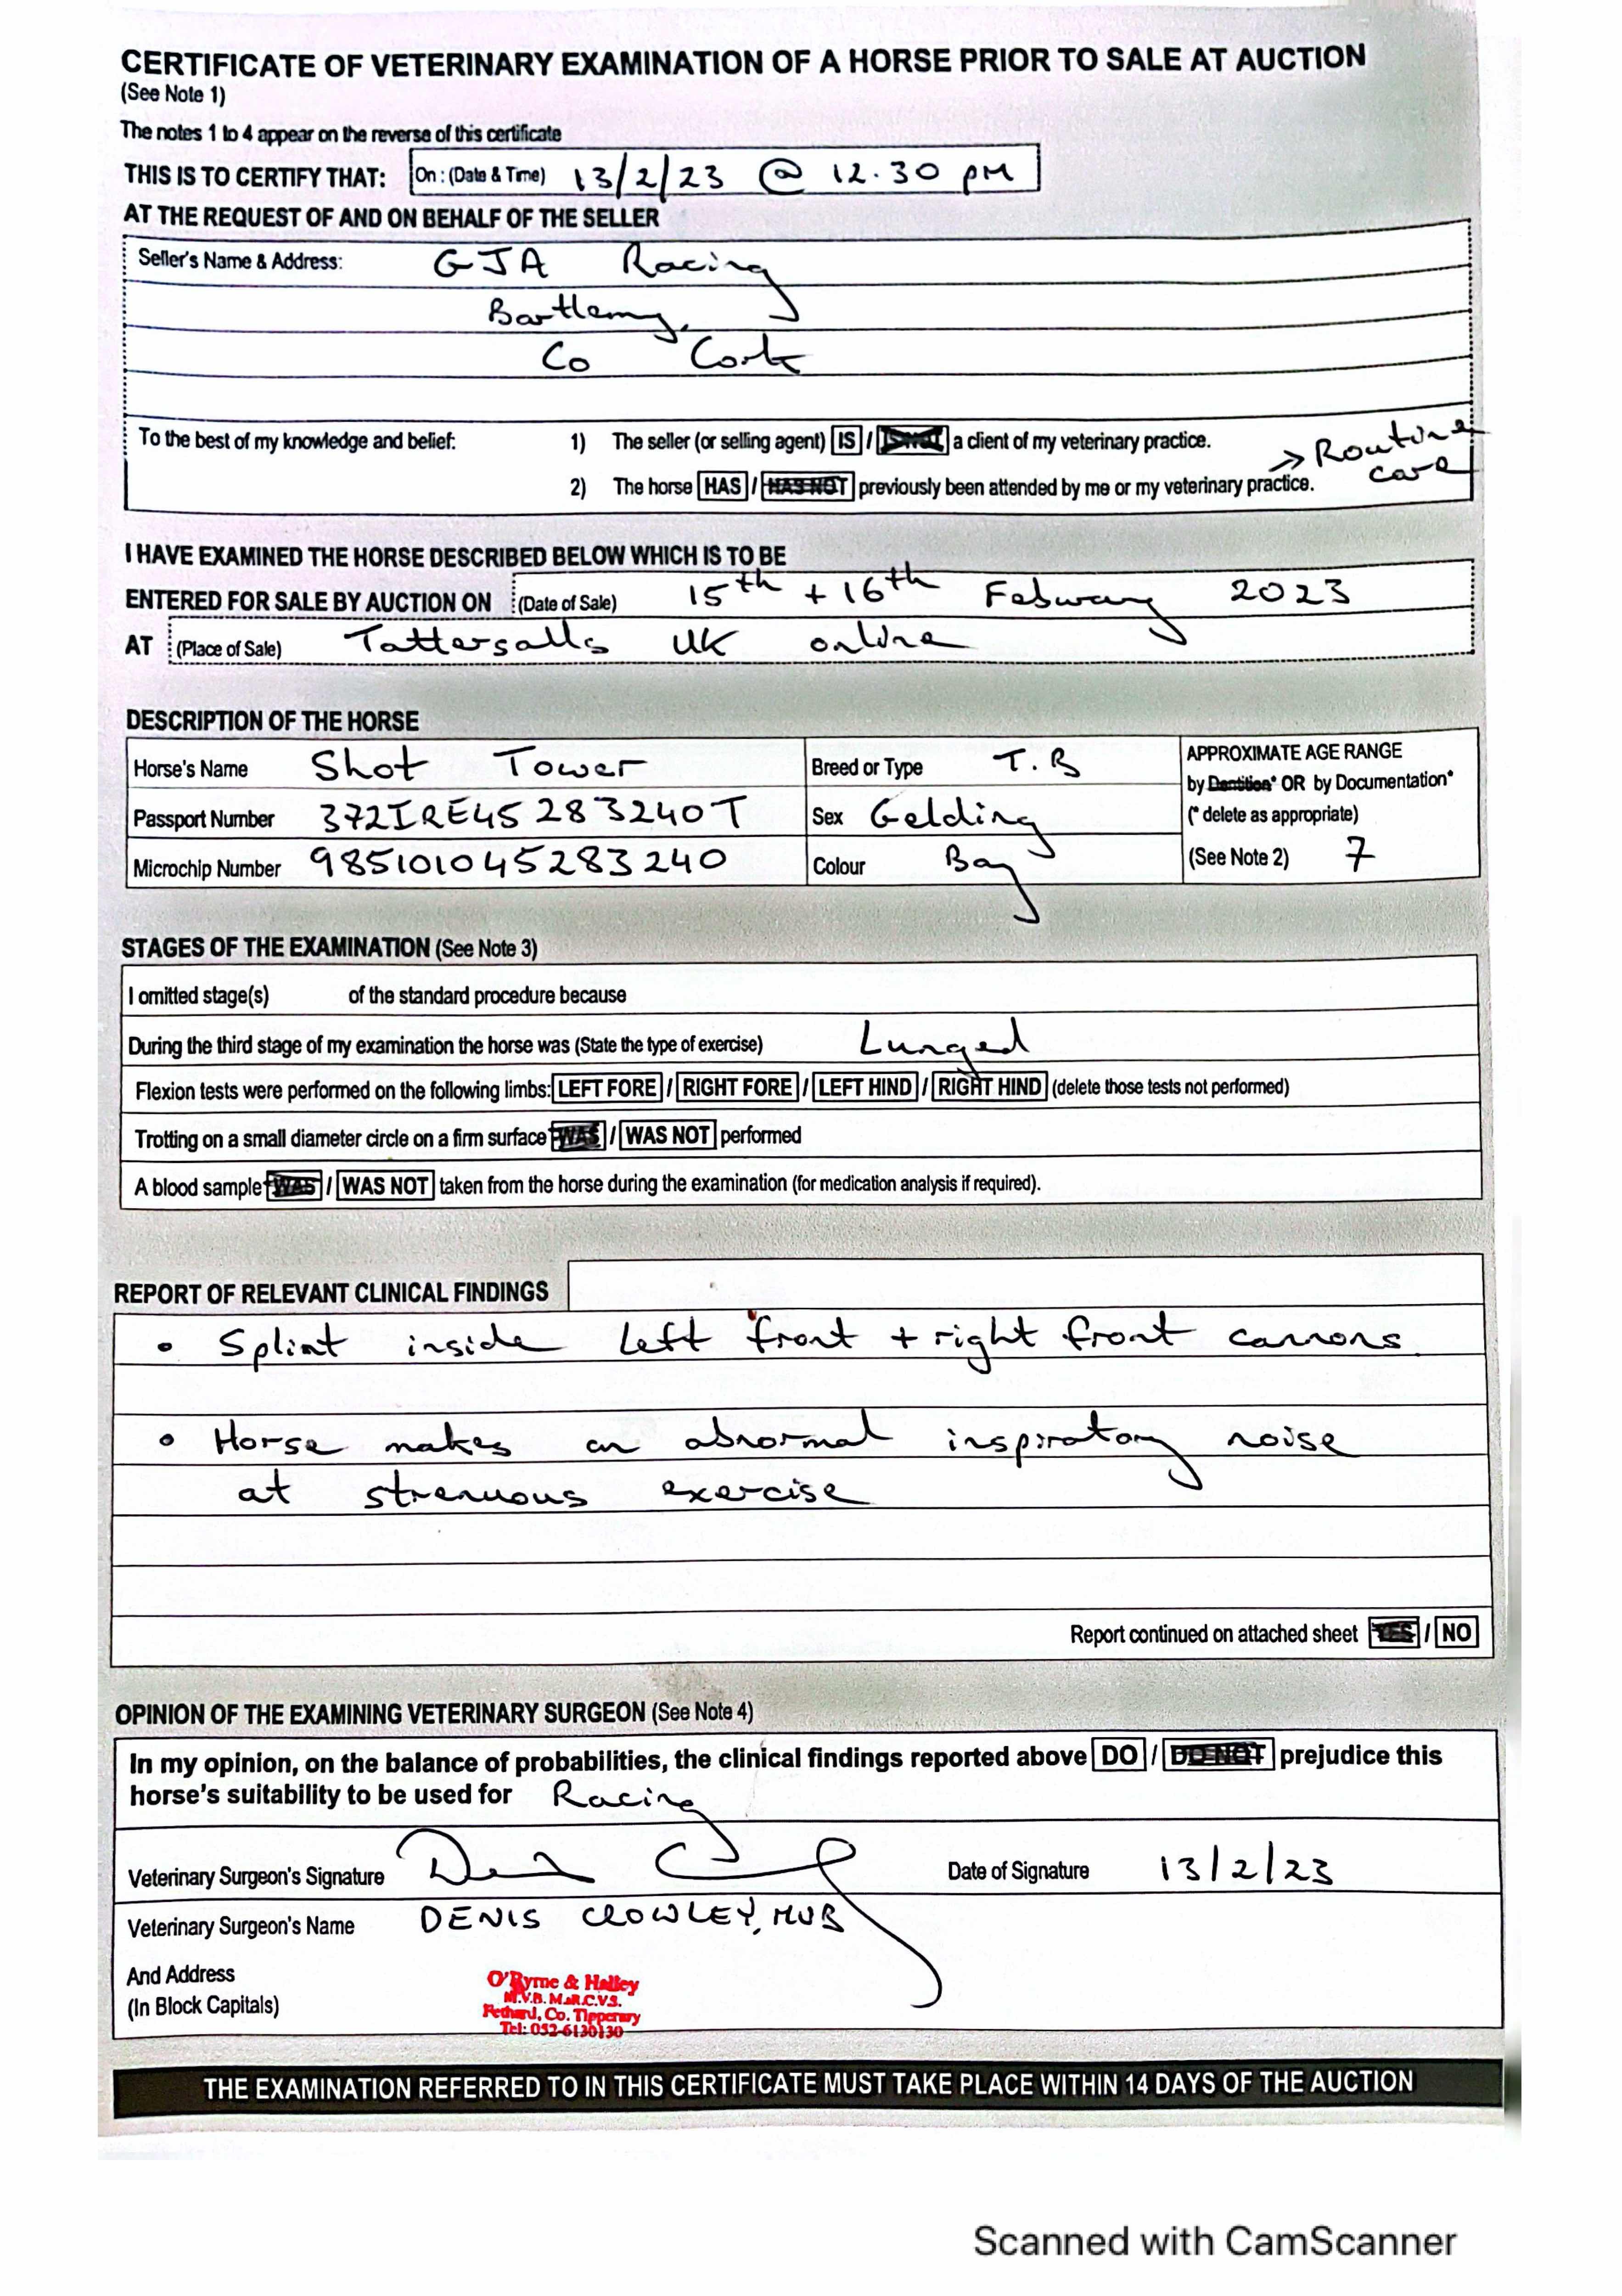 CERTIFICATE OF VETERINARY EXAMINATION OF A HORSE PRIOR TO SALE AT AUCTION
(See Note 1)
The notes 1 to 4 appear on the reverse of this certificate
THIS IS TO CERTIFY THAT: On : (Date & Time) 13/2/23 @ 12.30 pm
AT THE REQUEST OF AND ON BEHALF OF THE SELLER
Seller's Name & Address: GJA Racing
Bartlemy,
Co Cork
To the best of my knowledge and belief: 1) The seller (or selling agent) IS / IS NOT a client of my veterinary practice.
→ Routine
care
2) The horse HAS / HAS NOT previously been attended by me or my veterinary practice.
I HAVE EXAMINED THE HORSE DESCRIBED BELOW WHICH IS TO BE
ENTERED FOR SALE BY AUCTION ON (Date of Sale) 15th + 16th Febuary 2023
AT (Place of Sale) Tattersalls UK online
DESCRIPTION OF THE HORSE
Horse's Name Shot Tower Breed or Type T.B APPROXIMATE AGE RANGE
by Dentition* OR by Documentation*
Passport Number 372IRE45283240T Sex Gelding (* delete as appropriate)
Microchip Number 985101045283240 Colour Bay (See Note 2) 7
STAGES OF THE EXAMINATION (See Note 3)
I omitted stage(s) of the standard procedure because
During the third stage of my examination the horse was (State the type of exercise) Lunged
Flexion tests were performed on the following limbs: LEFT FORE / RIGHT FORE / LEFT HIND / RIGHT HIND (delete those tests not performed)
Trotting on a small diameter circle on a firm surface WAS / WAS NOT performed
A blood sample WAS / WAS NOT taken from the horse during the examination (for medication analysis if required).
REPORT OF RELEVANT CLINICAL FINDINGS
• Splint inside left front + right front cannons.
• Horse makes an abnormal inspiratory noise
at strenuous exercise
Report continued on attached sheet YES / NO
OPINION OF THE EXAMINING VETERINARY SURGEON (See Note 4)
In my opinion, on the balance of probabilities, the clinical findings reported above DO / DO NOT prejudice this
horse's suitability to be used for Racing
Veterinary Surgeon's Signature Date of Signature 13/2/23
Veterinary Surgeon's Name DENIS CROWLEY, MVB
And Address
(In Block Capitals)
O'Byrne & Halley
M.V.B. M.R.C.V.S.
Fethard, Co. Tipperary
Tel: 052-6130130
THE EXAMINATION REFERRED TO IN THIS CERTIFICATE MUST TAKE PLACE WITHIN 14 DAYS OF THE AUCTION
Scanned with CamScanner